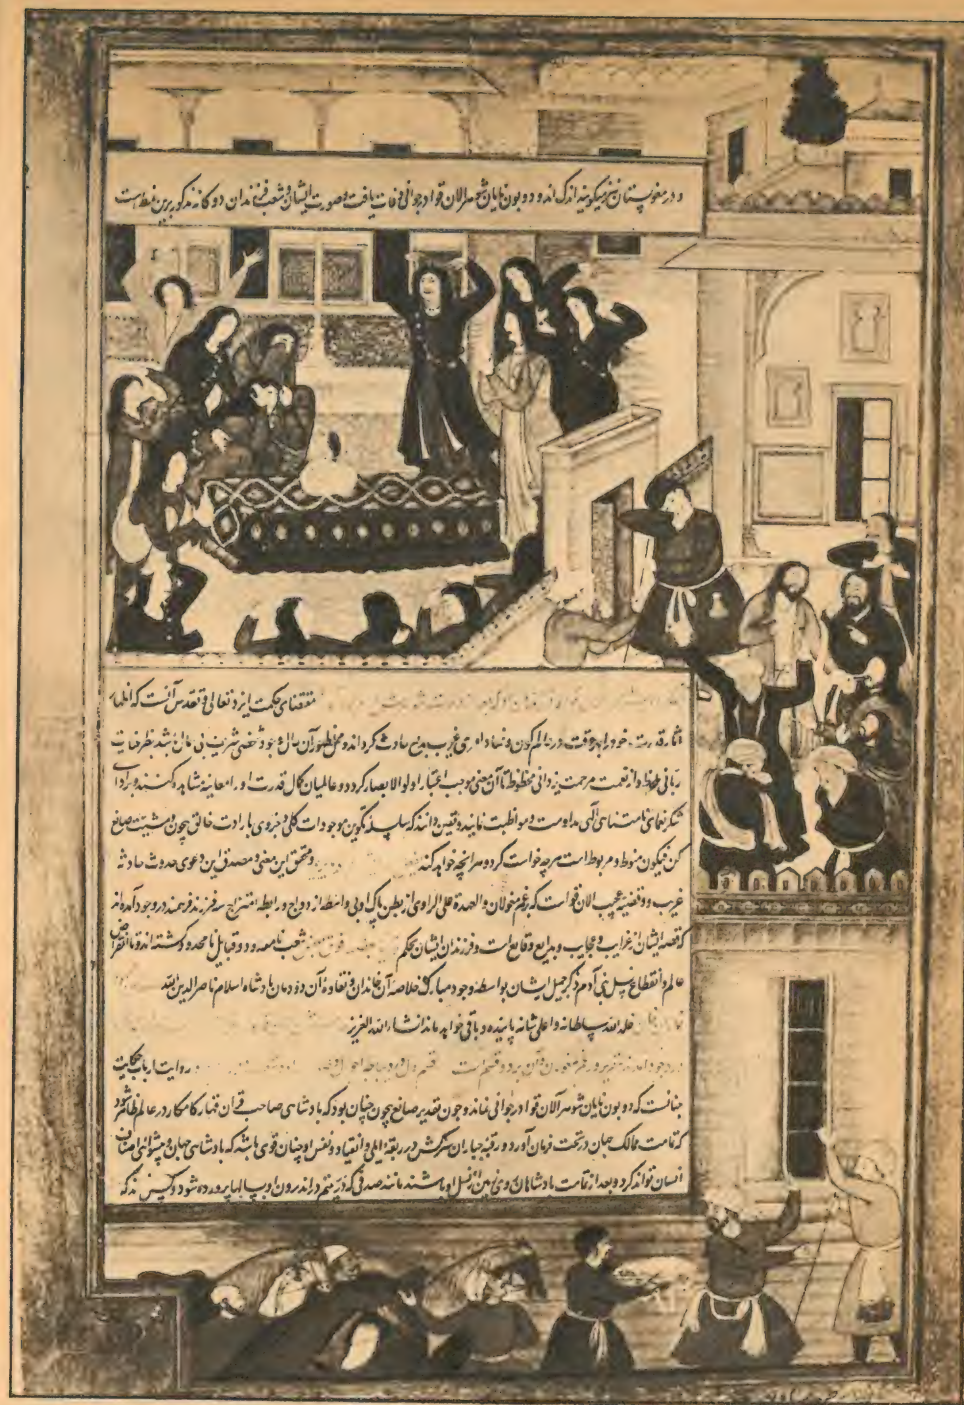 و در مغولستان نیز میگویند اندک اند و دوبون بایان شوهر الان قوا در جوانی وفات یافت و صورت ایشان و شعب فرزندان دوکانه مذکور برین نمط است
مقتضای حکمت ایزد تعالی و تقدس آنست که اظهار
آثار قدرت خود را بهر وقت در عالم کون و فساد امری غریب بدیع حادث گرداند و محل ظهور آن حال وجود شخصی شریف بی همال باشد بنظر عنایت
ربانی ملحوظ و از نعمت مرحمت یزدانی محظوظ تا آن معنی موجب اعتبار اولو الابصار گردد و عالمیان کمال قدرت او را معاینه مشاهده کنند و بر ادای
شکر نعمای نامتناهی الهی مداومت و مواظبت نمایند و یقین دانند که سلسله تکوین موجودات کلی و جزوی بارادت خالق بیچون و مشیت صانع
کن فیکون منوط و مربوط است هرچه خواست کرد و هرآنچه خواهد کند و محقق این معنی و مصدق این دعوی حدوث حادثه
غریب و وقضیه عجیب الان قوا است که بزعم مغولان والعهدة علی الراوی از بطن پاک او بی واسطه ازدواج و رابطه امتزاج سه فرزند فرخمند در وجود آمده اند
که قصه ایشان از غرایب و عجایب و بدایع وقایع است و فرزندان ایشان بحکم شعب نامعدود و قبایل نامحدود گشته اند و تا انقراض
عالم و انقطاع نسل بنی آدم ذکر جمیل ایشان بواسطه وجود مبارک خلاصه آن خاندان و نقاوه آن دودمان پادشاه اسلام ناصر الدین الله
خلد الله سلطانه و اعلی شانه پاینده و باقی خواهد ماند انشاء الله العزیز
روایت ارباب حکایت
چنانست که دوبون بایان شوهر آلان قوا در جوانی نماند و چون تقدیر صانع بیچون چنان بود که پادشاهی صاحب قران قهار کامکار در عالم ظاهر شود
که تمامت ممالک جهان در تحت فرمان آورد و رقبه جباران سرکش در ربقه ایلی و انقیاد و نفس او چنان قوی باشد که پادشاهی جهان و پیشوائی اصناف
انسان تواند کرد و بعد از تمامت پادشاهان روی زمین از نسل او باشند مانند صدفی که در یتیم در اندرون او بسالها پرورده شود و کسی نداند که